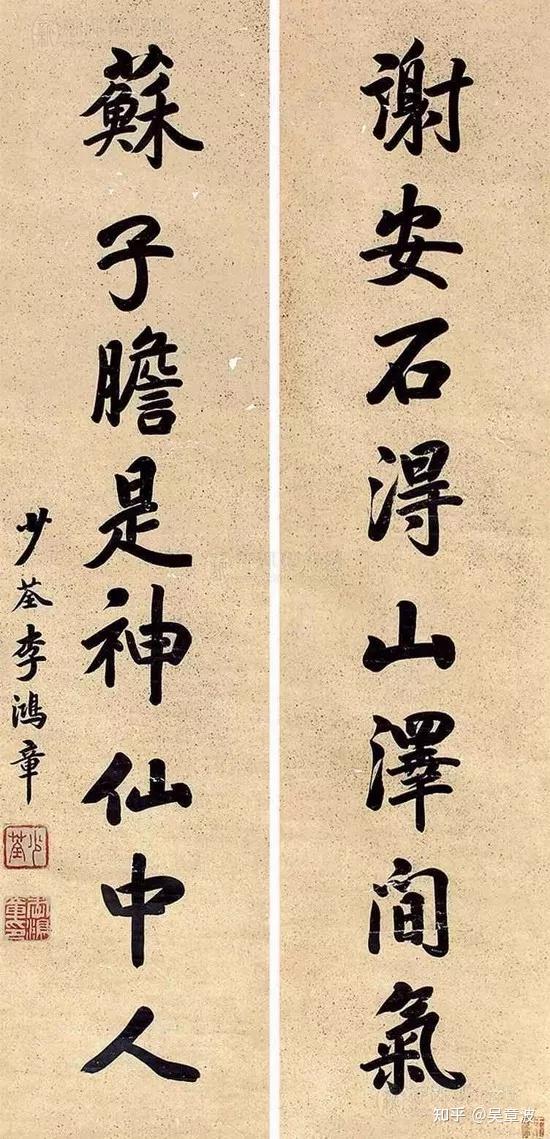 謝安石得山澤間氣
蘇子瞻是神仙中人
少荃李鴻章
少荃
知乎 @吴章波